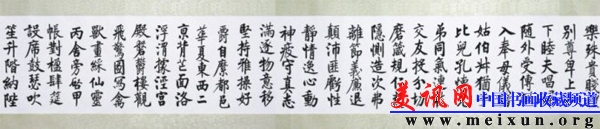 樂殊貴賤
別尊卑上
下睦夫唱
隨外受傅
入奉母儀
姑伯叔猶
比兒孔懷
弟同氣連
交友投分切
磨箴規仁慈
隱惻造次弗
離節義廉退
顛沛匪虧性
靜情逸心動
神疲守真志
滿逐物意移
堅持雅操好
爵自縻都邑
華夏東西二
京背芒面洛
浮渭據涇宮
殿盤鬱樓觀
飛驚圖寫禽
獸畫綵仙靈
丙舍旁啟甲
帳對楹肆筵
設席鼓瑟吹
笙升階納陛
中国书画收藏频道